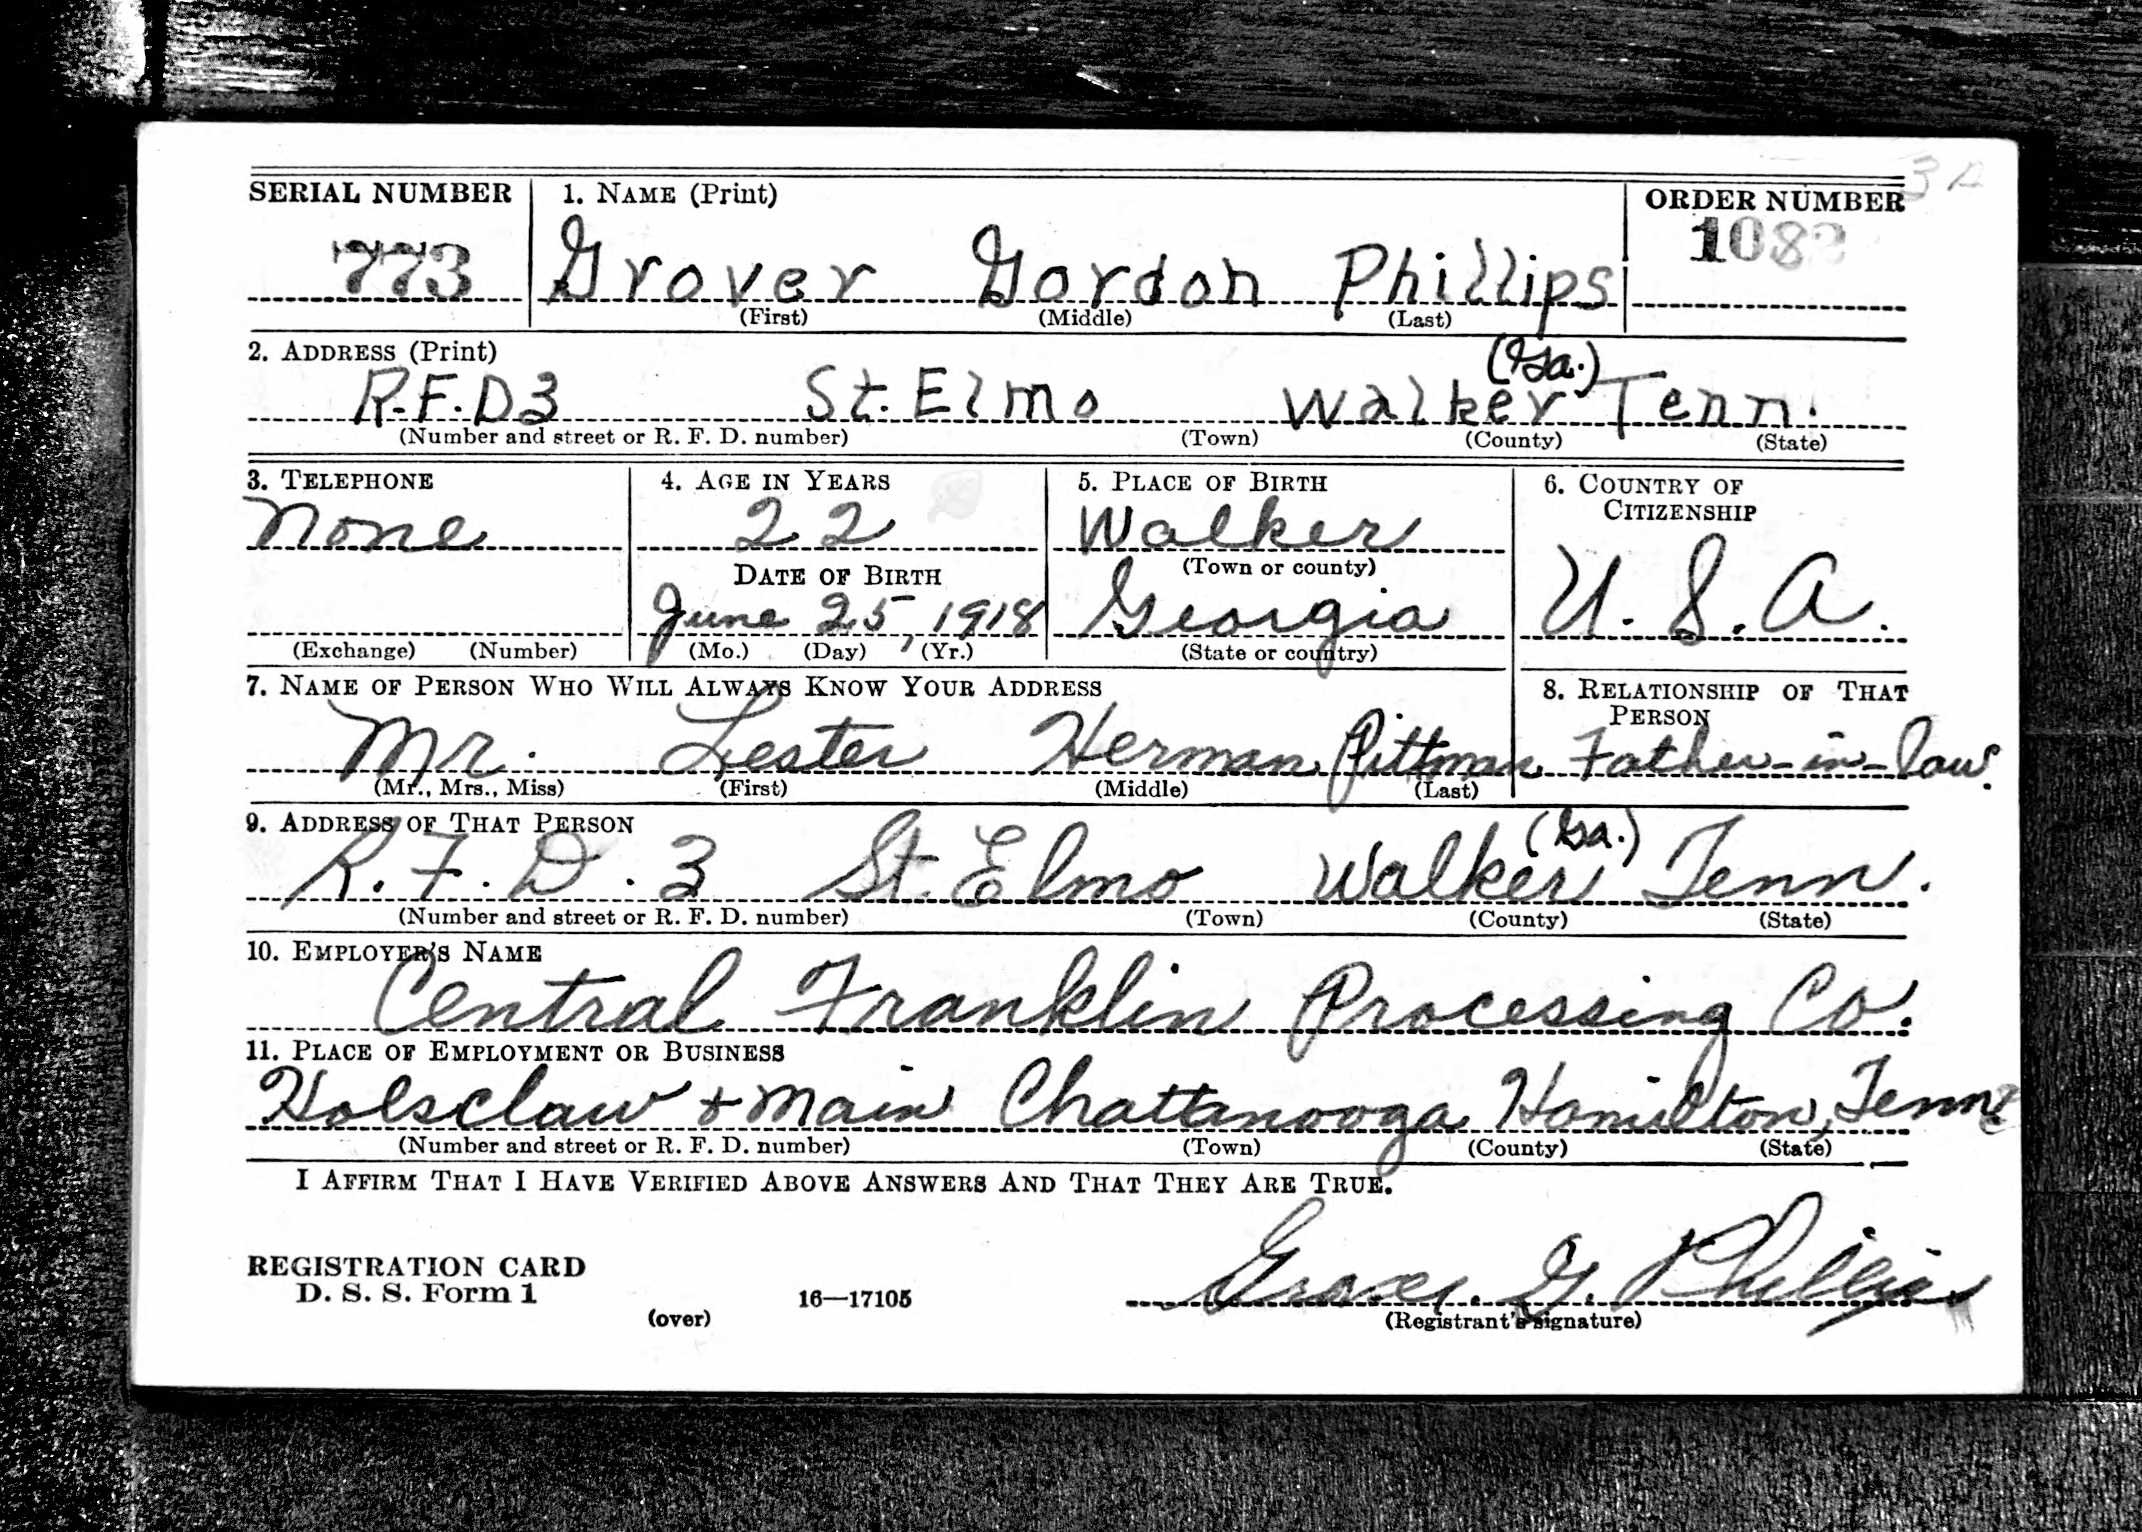 3A
SERIAL NUMBER 1. NAME (Print) ORDER NUMBER
773 Grover Gordon Phillips
(First) (Middle) (Last)
2. ADDRESS (Print)
(Ga.)
R.F.D3 St. Elmo Walker Tenn.
(Number and street or R. F. D. number) (Town) (County) (State)
3. TELEPHONE 4. AGE IN YEARS 5. PLACE OF BIRTH 6. COUNTRY OF
CITIZENSHIP
None 22 Walker
DATE OF BIRTH (Town or county)
June 25, 1918 Georgia U. S. A.
(Exchange) (Number) (Mo.) (Day) (Yr.) (State or country)
7. NAME OF PERSON WHO WILL ALWAYS KNOW YOUR ADDRESS 8. RELATIONSHIP OF THAT
PERSON
Mr. Lester Herman Pittman Father-in-law.
(Mr., Mrs., Miss) (First) (Middle) (Last)
9. ADDRESS OF THAT PERSON
(Ga.)
R. F. D. 3 St. Elmo Walker Tenn.
(Number and street or R. F. D. number) (Town) (County) (State)
10. EMPLOYER'S NAME
Central Franklin Processing Co.
11. PLACE OF EMPLOYMENT OR BUSINESS
Holsclaw + Main Chattanooga Hamilton, Tenn.
(Number and street or R. F. D. number) (Town) (County) (State)
I AFFIRM THAT I HAVE VERIFIED ABOVE ANSWERS AND THAT THEY ARE TRUE.
Grover. G. Phillips
REGISTRATION CARD
D. S. S. Form 1 16—17105
(over) (Registrant's signature)